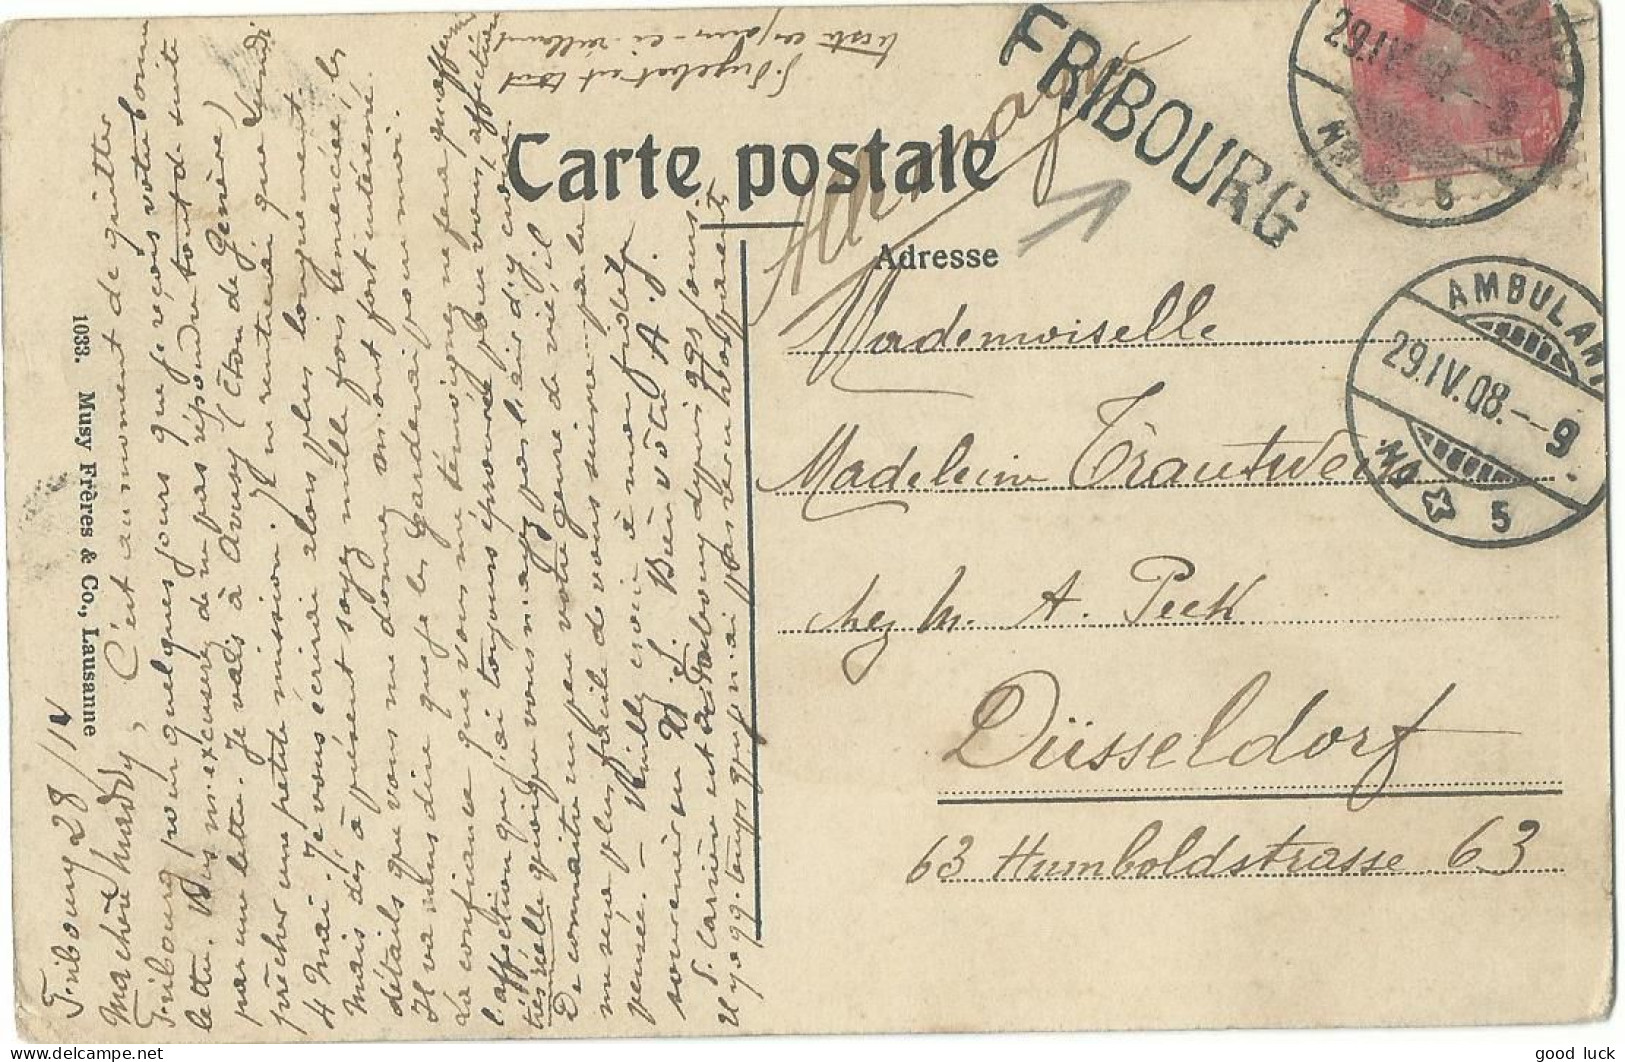 Carte postale
FRIBOURG
Allemagne
Adresse
29.IV.08.
No
5
AMBULANT
29.IV.08.–9
No
5
Mademoiselle
Madeleine Trautwein
chez M. A. Peek
Düsseldorf
63 Humboldstrasse 63
1033. Musy Frères & Co., Lausanne
Fribourg 28/IV
Ma chère C'est au moment de quitter
Fribourg pour quelques jours que je reçois votre bonne
lettre. Vous m'excuserez de ne pas répondre tout de suite
par une lettre. Je vais à Avusy (Cton de Genève)
prêcher une petite mission. Je ne rentrerai que lundi
4 Mai. Je vous écrirai alors plus longuement.
Mais dès à présent soyez mille fois remerciée; les
détails que vous me donnez m'ont fort intéressé.
Il va sans dire que je les garderai pour moi.
La confiance que vous me témoignez ne fera qu'affermir
l'affection que j'ai toujours éprouvée pour vous, affection
très réelle quoique vous n'ayez pas l'air d'y croire.
De connaître un peu votre genre de vie, il
me sera plus facile de vous suivre par la
pensée. – Veuillez croire à mon fidèle
souvenir en N. S. Bien vôtre A. J.
S. Carrière est à Fribourg depuis qqs jours.
Il y a qq. temps que je n'ai pas revu vos parents